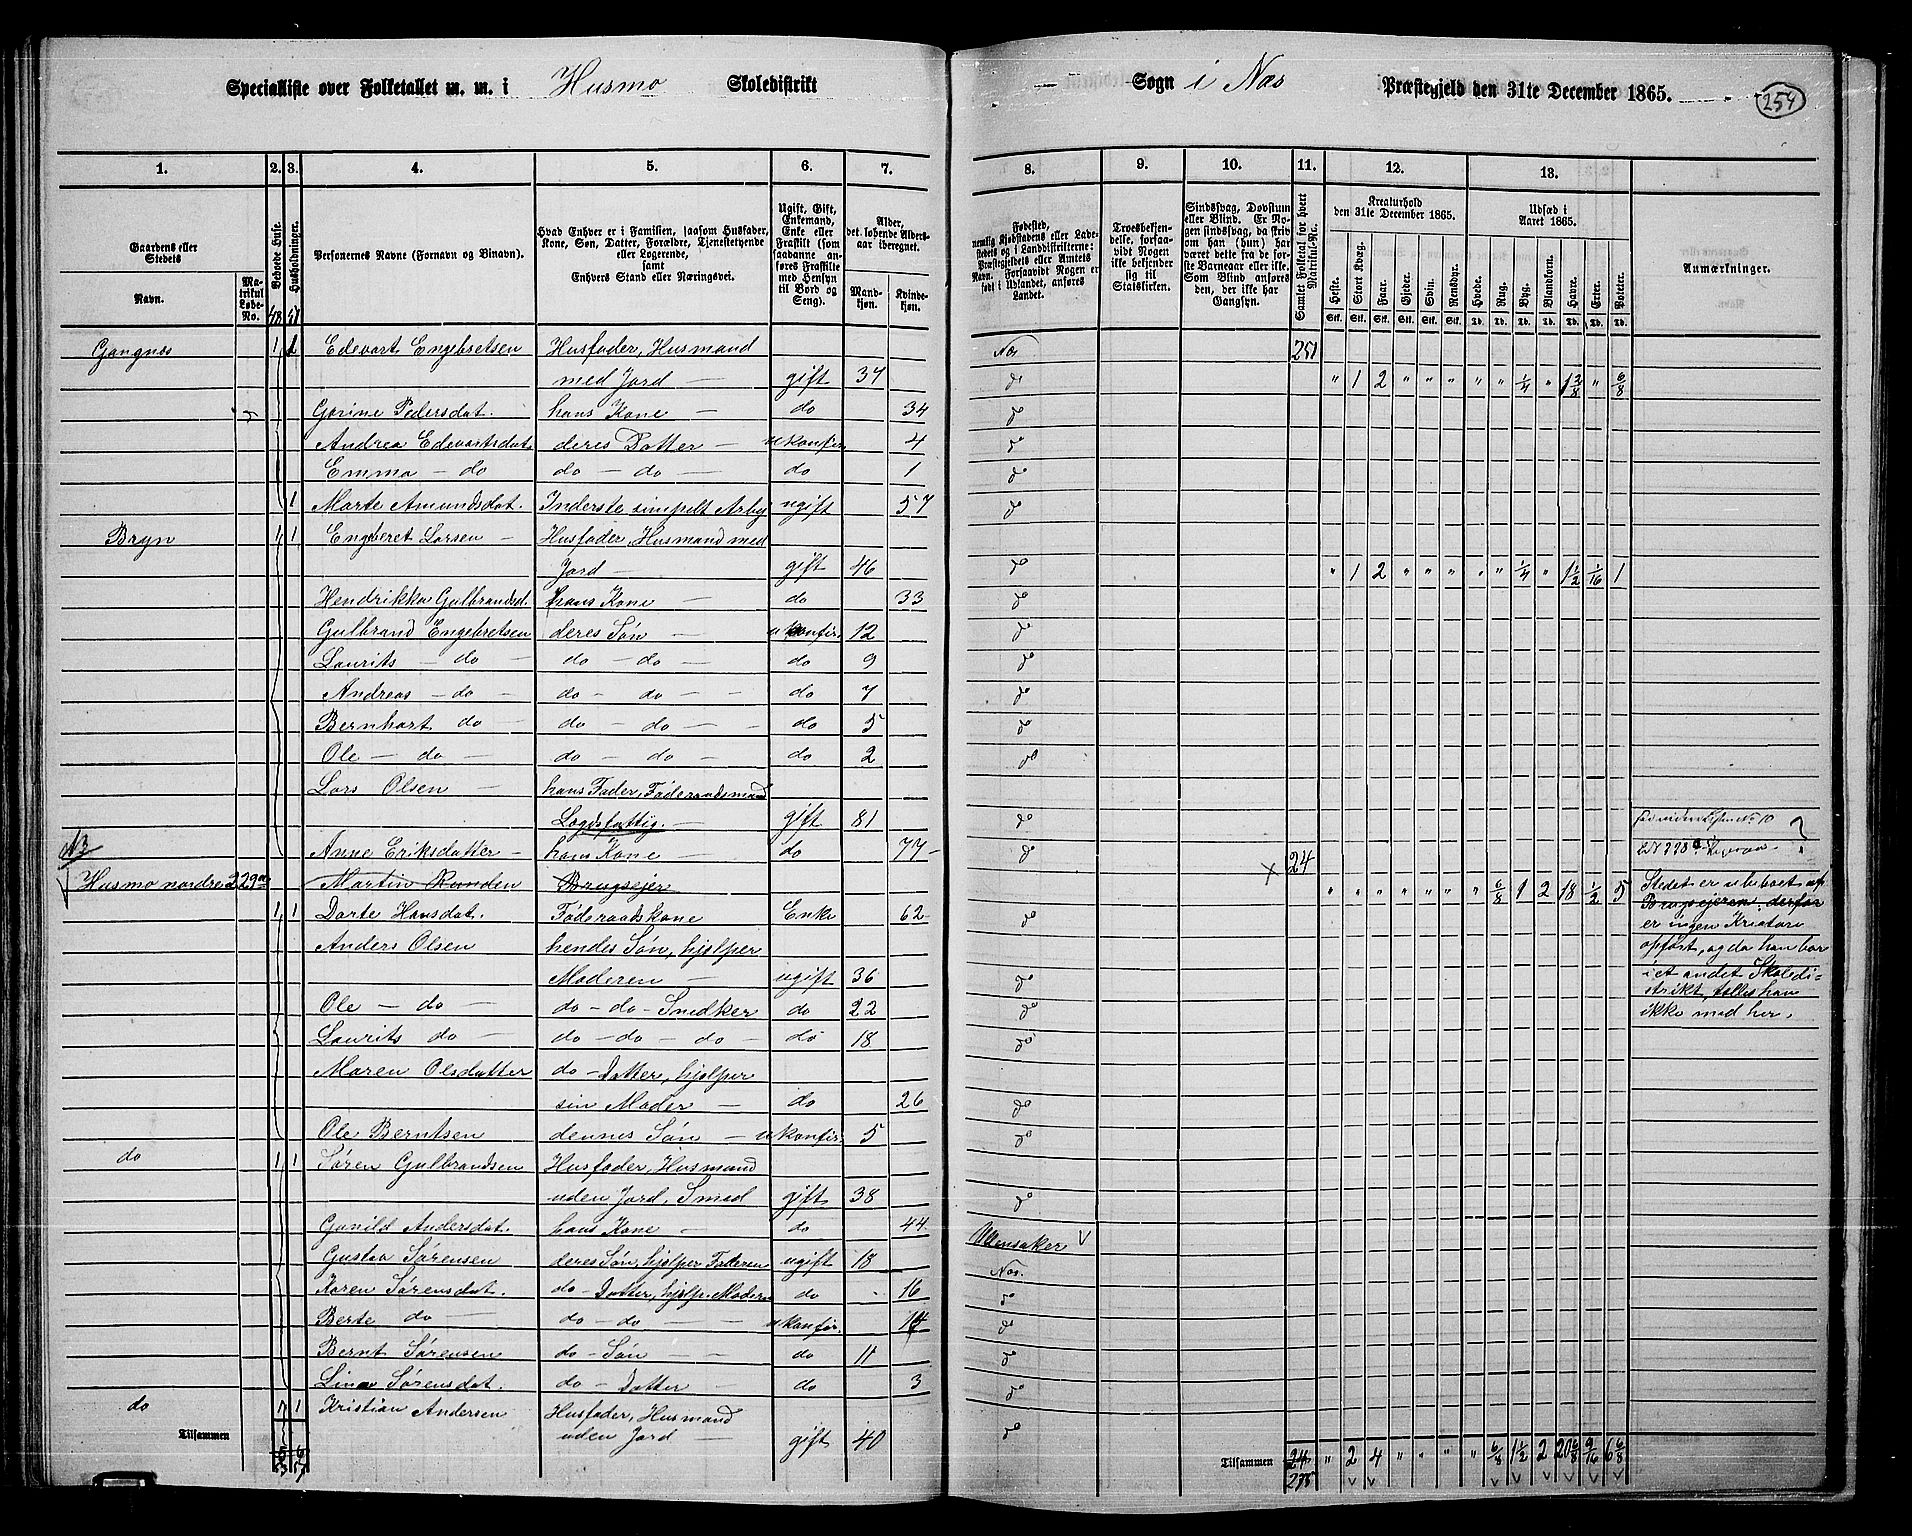 Specialliste over Folketallet m. m. i Husmo Skoledistrikt
Sogn i Næs Præstegjeld den 31te December 1865. 254
1. 2. 3. 4. 5. 6. 7.
8. 9. 10. 11. 12. 13.
Gaardens eller Stedets Navn.
Matrikul Løbe-No.
Beboede Huse.
Husholdninger.
Personernes Navne (Fornavn og Binavn).
Hvad Enhver er i Familien, saasom Husfader, Kone, Søn, Datter, Forældre, Tjenestetyende eller Logerende, samt Enhvers Stand eller Næringsvei.
Ugift, Gift, Enkemand, Enke eller Fraskilt (som saadanne anføres Fraskilte med Hensyn til Bord og Seng).
Alder, det løbende Aldersaar iberegnet.
Mandkjøn. Kvindekjøn.
Fødested, nemlig Kjøbstadens eller Ladestedets eller i Landdistrikterne: Præstegjeldets eller Amtets Navn. Forsaavidt Nogen er født i Udlandet, anføres Landet.
Troesbekjendelse, forsaavidt Nogen ikke bekjender sig til Statskirken.
Sindssvag, Døvstum eller Blind. Er Nogen sindssvag, da skrives om han (hun) har været dette fra de første Barneaar eller ikke. Som Blind anføres den, der ikke har Gangsyn.
Samlet Folketal for hvert Matrikul-No.
Kreaturhold den 31te December 1865.
Heste. Stort Kvæg. Faar. Gjeder. Svin. Rensdyr.
Udsæd i Aaret 1865.
Hvede. Rug. Byg. Blandkorn. Havre. Erter. Poteter.
Stk. Stk. Stk. Stk. Stk. Stk. Td. Td. Td. Td. Td. Td. Td.
Anmærkninger.
Gangnæs 1 2 Edevart Engebretsen Husfader, Husmand Næs 251
med Jord — gift 37 do " 1 2 " " " " " 1/4 " 1 3/8 " 6/8
Gorine Pedersdat. hans Kone — do 34 do
Andrea Edevartsdat. deres Datter — ukonfir. 4 do
Emma — do do — do — do 1 do
1 Marte Amundsdat. Inderste simpelt Arby ugift 57 do
Bryn 1 1 Engebret Larsen — Husfader, Husmand med
Jord — gift 46 do " 1 2 " " " " " 1/4 " 1 1/2 1/16 1
Hendrikka Gulbrandsd. hans Kone — do 33 do
Gulbrand Engebretsen deres Søn — ukonfir. 12 do
Laurits — do — do — do — do 9 do
Andreas — do — do — do — do 7 do
Bernhart do — do — do — do 5 do
Ole — do — do — do — do 2 do
Lars Olsen — hans Fader, Føderaadsmand
Lægdsfattig. — gift 81 do
Anne Eriksdatter — hans Kone — do 77 do 24
Husmo nordre 229a Martin Runden Brugseier " " " " " " " 6/8 1 2 18 1/2 5 Stedet er ubeboet af
1 1 Dorte Hansdat. Føderaadskone Enke 62 do Brugseieren, derfor
Anders Olsen hendes Søn, hjelper er ingen Kreature
Moderen — ugift 36 do opført, og da han bor
Ole — do do — do — Snedker do 22 do i et andet Skoledi-
Laurits do — do — do — do — do 18 do strikt, tælles han
Maren Olsdatter do — Datter, hjelper ikke med her.
sin Moder — do 26 do
Ole Berntsen dennes Søn — ukonfir. 5 do
do 1 1 Søren Gulbrandsen Husfader, Husmand
uden Jord, Smed gift 38 do
Gunild Andersdat. hans Kone — do 44 Ullensaker V
Gustav Sørensen deres Søn, hjelper Faderen ugift 18 Næs.
Karen Sørensdat. do — Datter, hjelp. Moderen do 16 do
Berte do — do — do — ukonfir. 14 do
Bernt Sørensen do — Søn — do 11 do
Lina Sørensdat. do — Datter — do 3 do
do 1 1 Kristian Andersen Husfader, Husmand
uden Jord — gift 40 do
Tilsammen 5 6
Tilsammen 24 " 2 4 " " " " 6/8 1 1/2 2 20 6/8 9/16 6 6/8
275